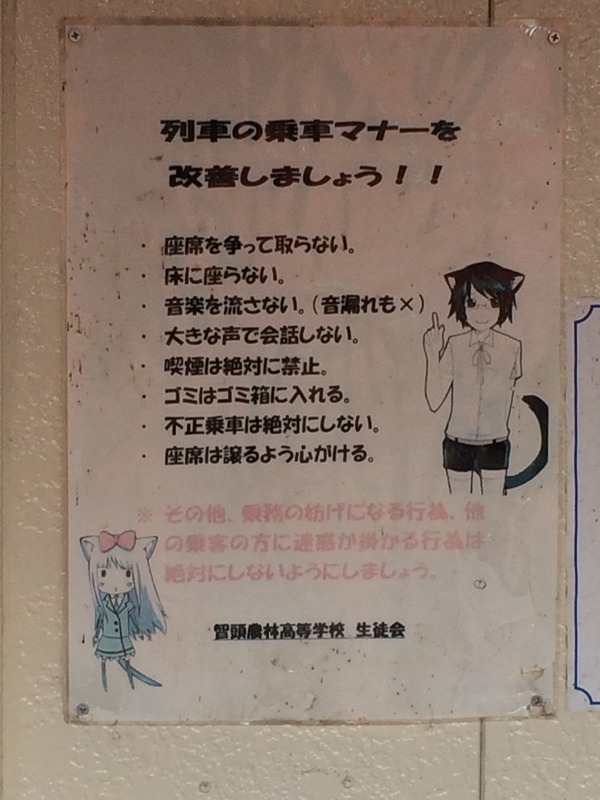 列車の乗車マナーを
改善しましょう！！
・ 座席を争って取らない。
・ 床に座らない。
・ 音楽を流さない。（音漏れも×）
・ 大きな声で会話しない。
・ 喫煙は絶対に禁止。
・ ゴミはゴミ箱に入れる。
・ 不正乗車は絶対にしない。
・ 座席は譲るよう心がける。
※ その他、乗務の妨げになる行為、他
の乗客の方に迷惑が掛かる行為は
絶対にしないようにしましょう。
智頭農林高等学校 生徒会